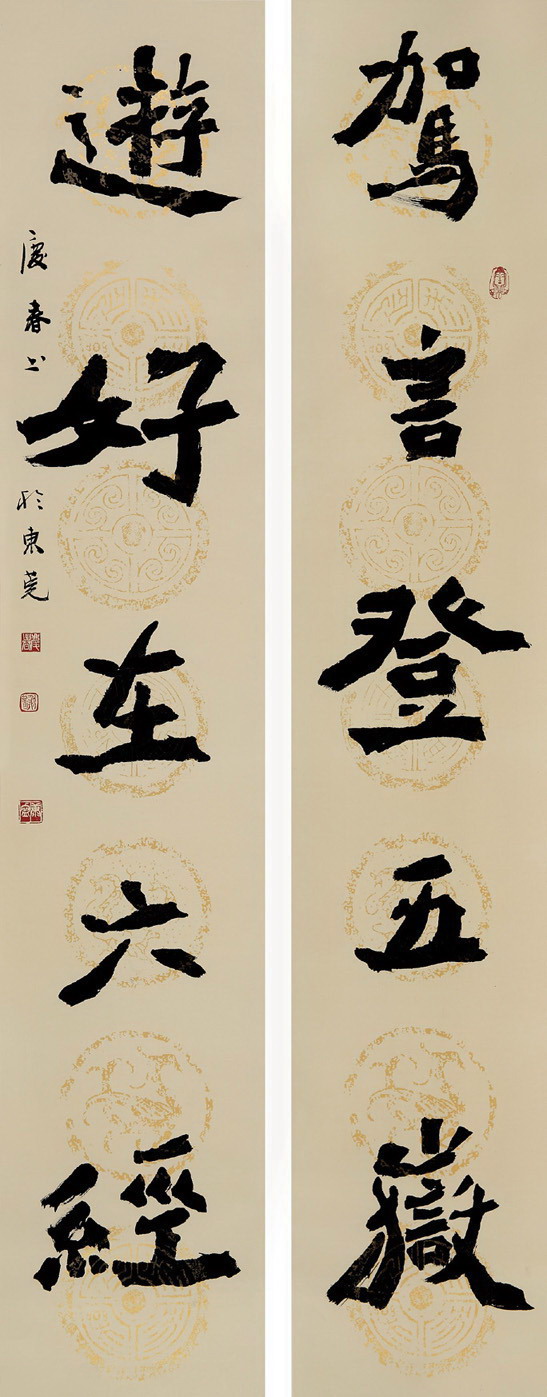 駕言登五嶽
遊好在六經
慶春书於東莞